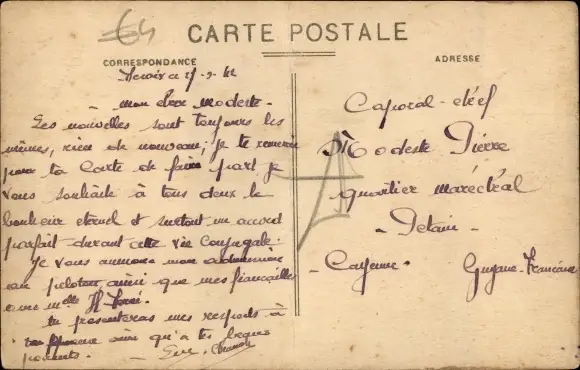 CARTE POSTALE
CORRESPONDANCE
- mon cher modeste -
Les nouvelles sont toujours les
mêmes, rien de nouveau; je te remercie
pour ta Carte de faire part je
vous souhaite à tous deux le
bonheur eternel et surtout un accord
parfait durant cette vie Conjugale.
Je vous annonce mon
au peloton, ainsi que mes fiançailles
avec melle H.
tu presenteras mes respects à
ainsi qu'a tes beaux
parents.
ADRESSE
Caporal-chef
Modeste Pierre
quartier maréchal
- Petain -
- Cayenne - Guyane-Francaise